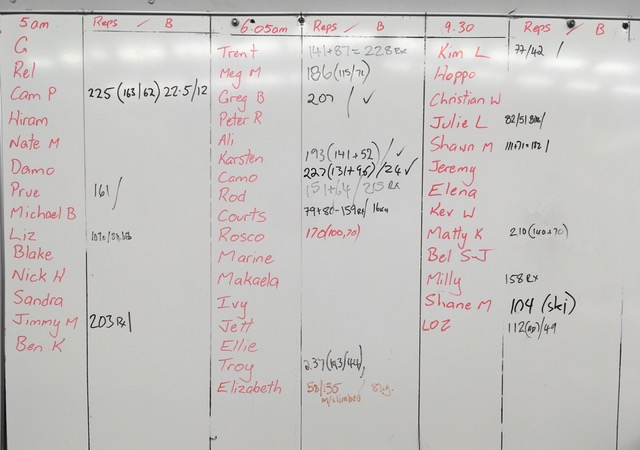 5am Reps / B
G
Rel
Cam P 225 (163/62) 22.5/12
Hiram
Nate M
Damo
Prue 161/
Michael B
Liz
Blake
Nick H
Sandra
Jimmy M 203 Rx/
Ben K
6.05am Reps / B
Trent 141+87=228 Rx
Meg M 186 (115/71)
Greg B 207 / ✓
Peter R
Ali
Karsten 193 (141+52) / ✓
Camo 227 (131+96)/24 ✓
Rod 151+64 / 215 Rx
Courts 79+80-159 Rx/ 16kg
Rosco 170 (100,70)
Marine
Makaela
Ivy
Jett
Ellie
Troy 237 (193/44),
Elizabeth 58/35
m/climbers
9.30 Reps / B
Kim L 77/42 /
Hoppo
Christian W
Julie L 82/51
Shawn M 111+71=182 /
Jeremy
Elena
Kev W
Matty K 210 (140+70)
Bel S-J
Milly 158 Rx
Shane M 104 (ski)
LOZ /49